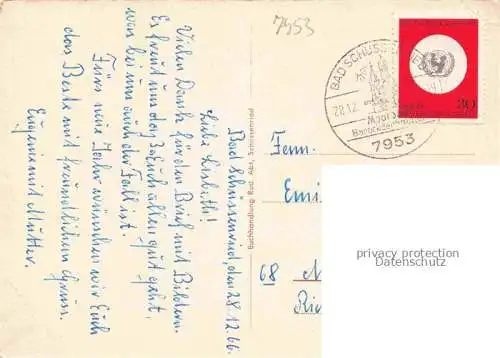 7953
Bad Schüssenried, den 28.12.66.
Liebe Lisbeth!
Vielen Dank für den Brief mit Bildern.
Es freut uns das es Euch allen gut geht,
was bei uns auch der Fall ist.
Fürs neue Jahr wünschen wir Euch
das Beste mit freundlichem Gruss.
Eugenie mit Mutter.
Buchhandlung Bad. Abt. Schussenried
BAD SCHUSSEN
28.12.
Moor
7953
30
Fam.
Emi
68
privacy protection
Datenschutz